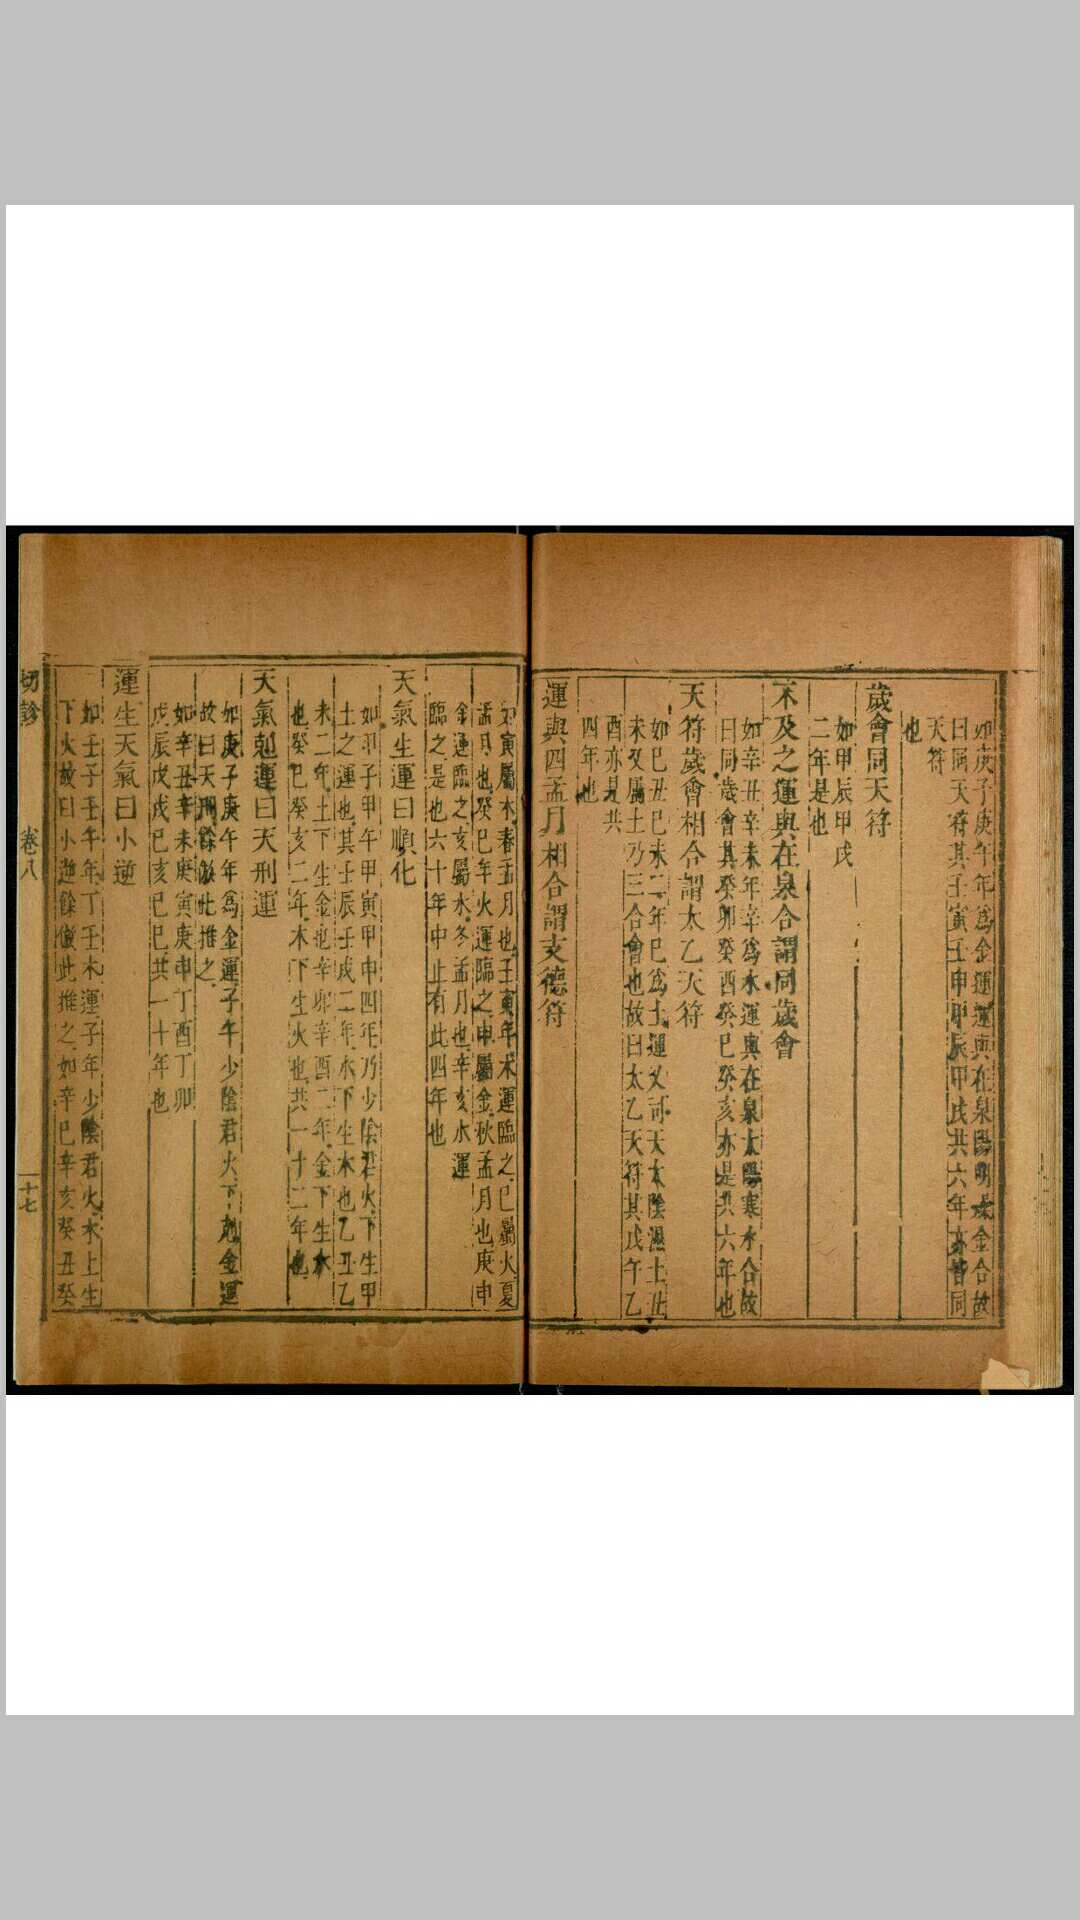 如庚子庚午年爲金運運與在泉陽明燥金合故
曰同天符其壬寅壬申甲辰甲戌共六年亦皆同
天符
也
歲會同天符
如甲辰甲戌
二年是也
不及之運與在泉合謂同歲會
如辛丑辛未年辛爲水運與在泉太陽寒水合故
曰同歲會其癸卯癸酉癸巳癸亥亦是共六年也
天符歲會相合謂太乙天符
如巳丑巳未二年巳爲土運又司天太陰濕土丑
未又屬土乃三合會也故曰太乙天符其戊午乙
酉亦是共
四年也
運與四孟月相合謂支德符
如寅屬木春孟月也壬寅年木運臨之巳屬火夏
孟月也癸巳年火運臨之申屬金秋孟月也庚申
金運臨之亥屬水冬孟月也辛亥水運
臨之是也六十年中止有此四年也
天氣生運曰順化
如甲子甲午甲寅甲申四年乃少陰君火下生甲
土之運也其壬辰壬戌二年水下生木也乙丑乙
未二年土下生金也辛卯辛酉二年金下生水
也癸巳癸亥二年木下生火也共一十二年也
天氣尅運曰天刑運
如庚子庚午年爲金運子午少陰君火下尅金運
故曰天刑餘倣此推之
如辛丑辛未庚寅庚申丁酉丁卯
戊辰戊戌巳亥巳巳共一十年也
運生天氣曰小逆
如壬子壬午年丁壬木運子年少陰君火木上生
下火故曰小逆餘倣此推之如辛巳辛亥癸丑癸
切診
卷八
十七